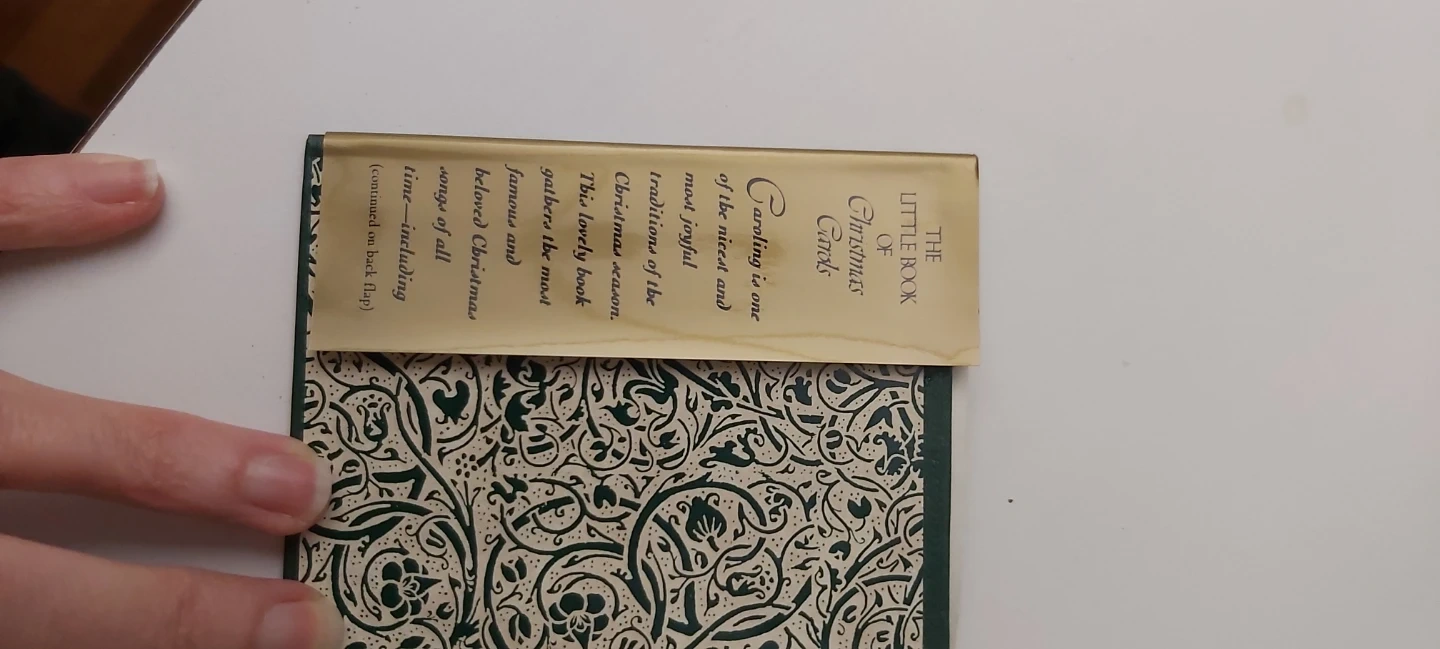 THE
LITTLE BOOK
OF
Christmas
Carols
Caroling is one
of the nicest and
most joyful
traditions of the
Christmas season.
This lovely book
gathers the most
famous and
beloved Christmas
songs of all
time—including
(continued on back flap)